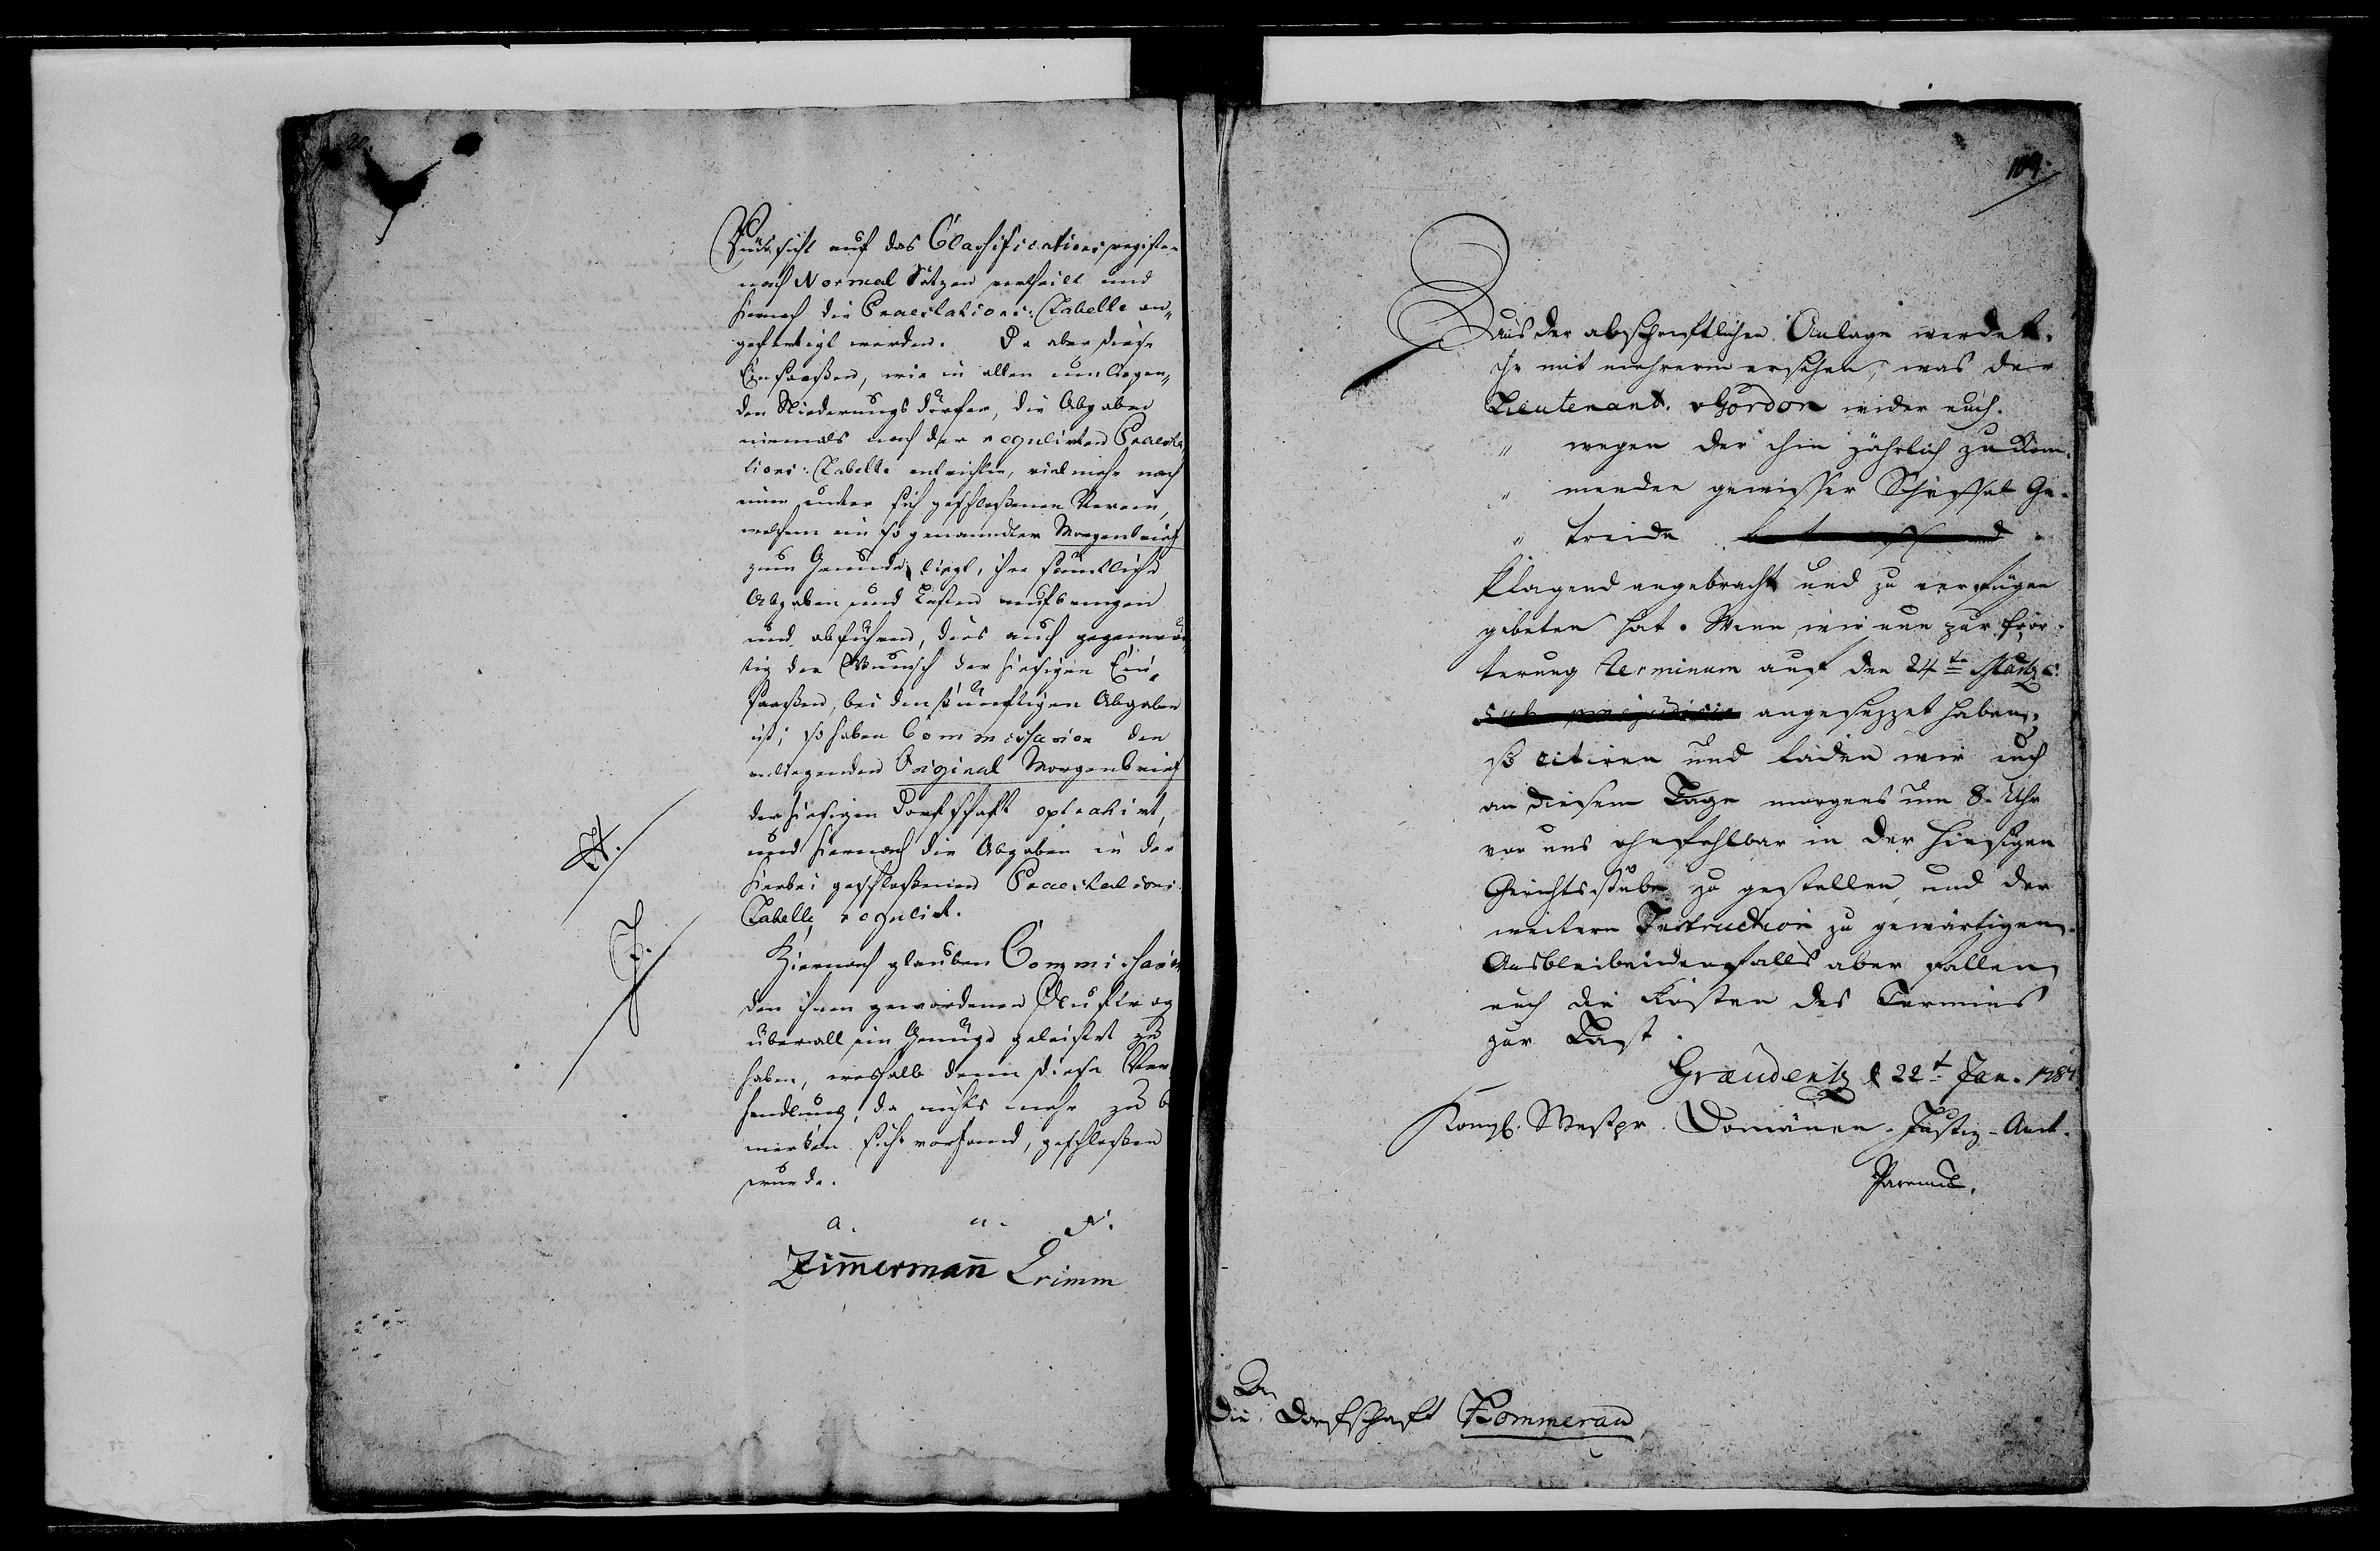 Rücksicht auf das Classifications register
nach Normal Sätzen vertheilt und
hiernach die Praestations-Tabelle an„
gefertigt werden. Da aber diese
Einsaaßen, wie in allen umliegen„
den Niederungs dörfer, die Abgaben
niemals nach der regulirten Praesta
tions-Tabelle entrichten, vielmehr nach
einem unter sich geschloßenen Verein,
welchem ein so genanndter Morgenbrief
zum Grunde liegt, ihre sämtliche
Abgaben und Lasten aufbringen
und abführen, dies auch gegenwär
tig der Wunsch der hiesigen Ein„
saaßen, bei den künftigen Abgaben
ist; so haben Commissarien den
anliegenden Original Morgenbrief
der hiesigen Dorfschaft extrahirt,
H.
und hiernach die Abgaben in der
hierbei geschloßenen Praestations
Tabelle regulirt.
J.
Hiernach glauben Commissarien
den ihnen gewordenen Auftrag
überall ein Genüge geleistet zu
haben, weshalb denn diese Ver
handlung, da nichts mehr zu be
merken sich vorfand, geschloßen
wurde.
a. u. s.
Zim̄erman̄ Grimm
109.
Aus der abschriftlichen Anlage werdet
ihr mit mehrerm ersehen, was der
Lieutenant v Gordon wider euch.
„ wegen der ihm jährlich zu kom„
„ menden gewisser Scheffel Ge-
„ treide
klagend angebracht und zu verfügen
gebeten hat. Wenn wir nun zur Erör-
terung terminum auf den 24te Martz c:
sub praejudicio angesezzet haben,
so citiren und laden wir euch
an diesem Tage morgens um 8. Uhr
vor uns ohnfehlbar in der hiesigen
Gerichtsstube zu gestellen und der
weitern Instruction zu gewärtigen.
Ausbleibendenfalls aber fallen
euch die Kosten des Termins
zur Last.
Graudentz d 22t Jan. 1787
Königl. Westpr. Domänen-Justiz-Amt.
An
die Dorfschaft Kommerau